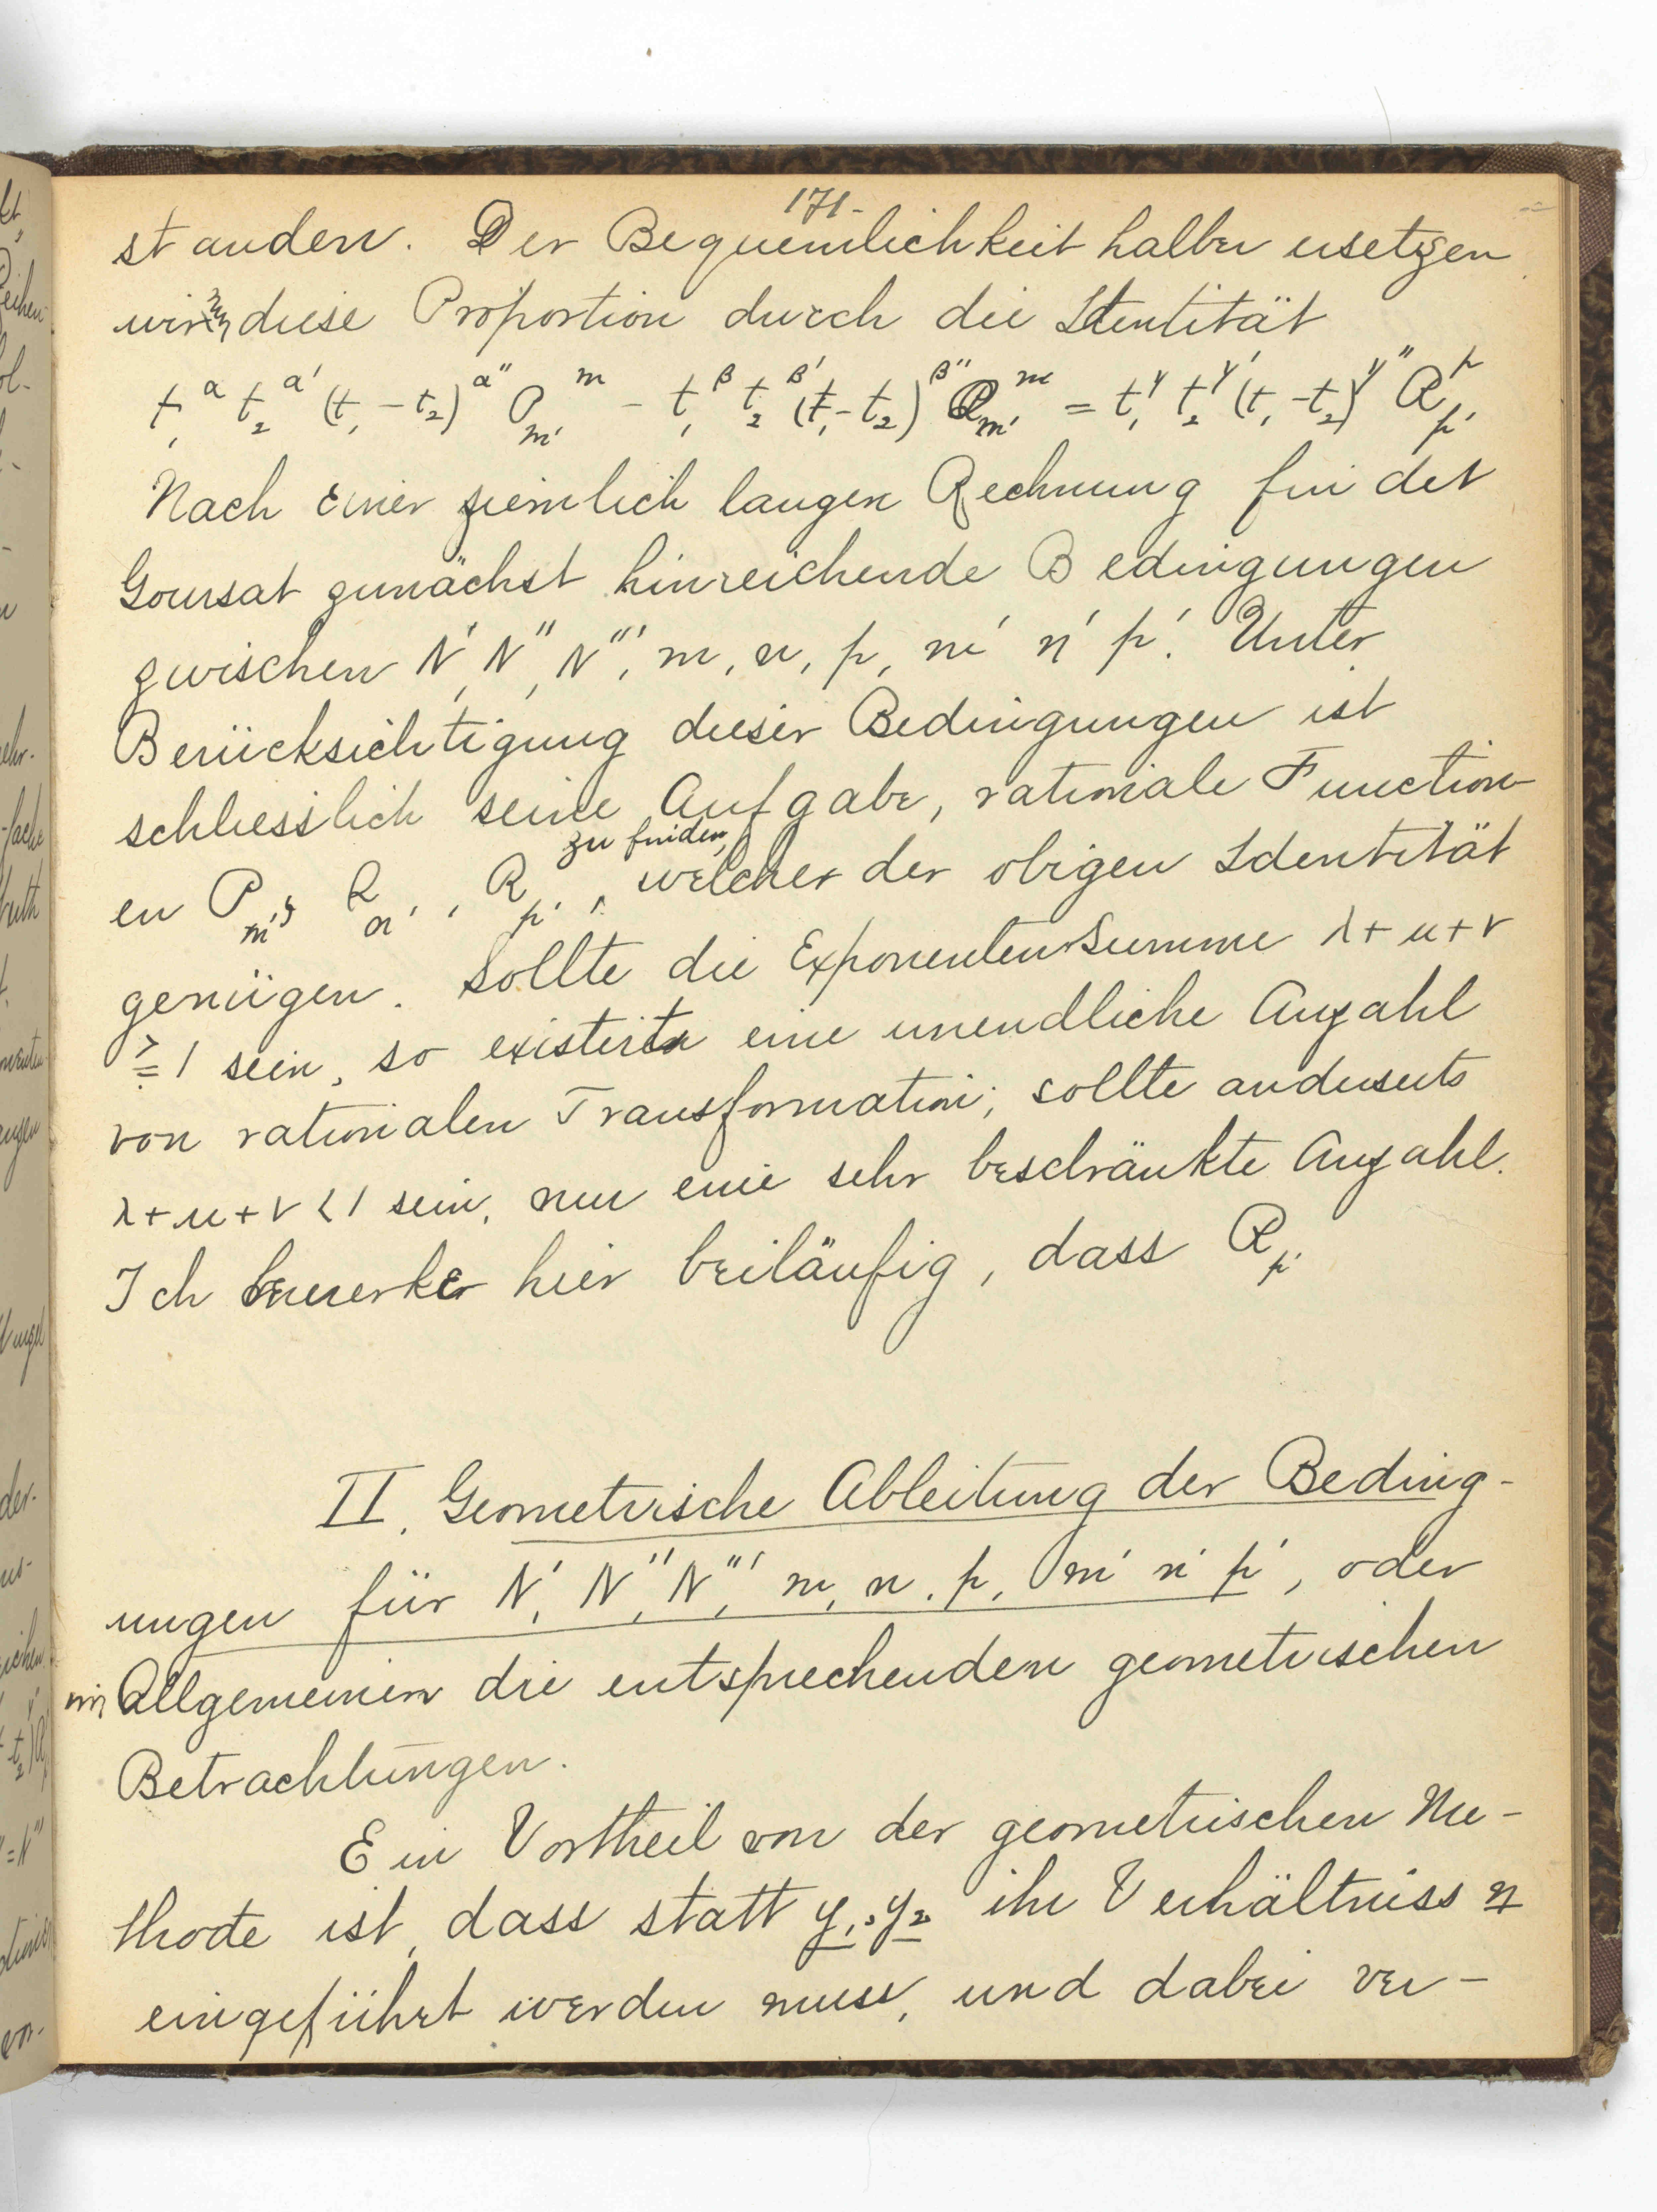 171.
standen. Der Bequemlichkeit halber ersetzen
wir diese Proportion durch die Identität
t₁^α t₂^α' (t₁ - t₂)^α'' P_m'^m - t₁^β t₂^β' (t₁ - t₂)^β'' Q_m'^m = t₁^γ t₂^γ' (t₁ - t₂)^γ'' R_p'^p
Nach einer ziemlich langen Rechnung findet
Goursat zunächst hinreichende Bedingungen
zwischen N', N'', N''', m, n, p, m' n' p'. Unter
Berücksichtigung dieser Bedingungen ist
schliesslich seine Aufgabe, rationale Function-
zu finden,
en P_m', Q_n', R_p', welche der obigen Identität
genügen. Sollte die Exponentensumme λ+μ+ν
≥ 1 sein, so existirt eine unendliche Anzahl
von rationalen Transformation; sollte anderseits
λ+μ+ν < 1 sein, nur eine sehr beschränkte Anzahl.
Ich bemerke hier beiläufig, dass R_p'
II. Geometrische Ableitung der Beding-
ungen für N', N'', N''', m, n, p, m' n' p', oder
im Allgemeinen die entsprechenden geometrischen
Betrachtungen.
Ein Vortheil von der geometrischen Me-
thode ist, dass statt y₁, y₂ ihr Verhältniss η
eingeführt werden muss, und dabei ver-